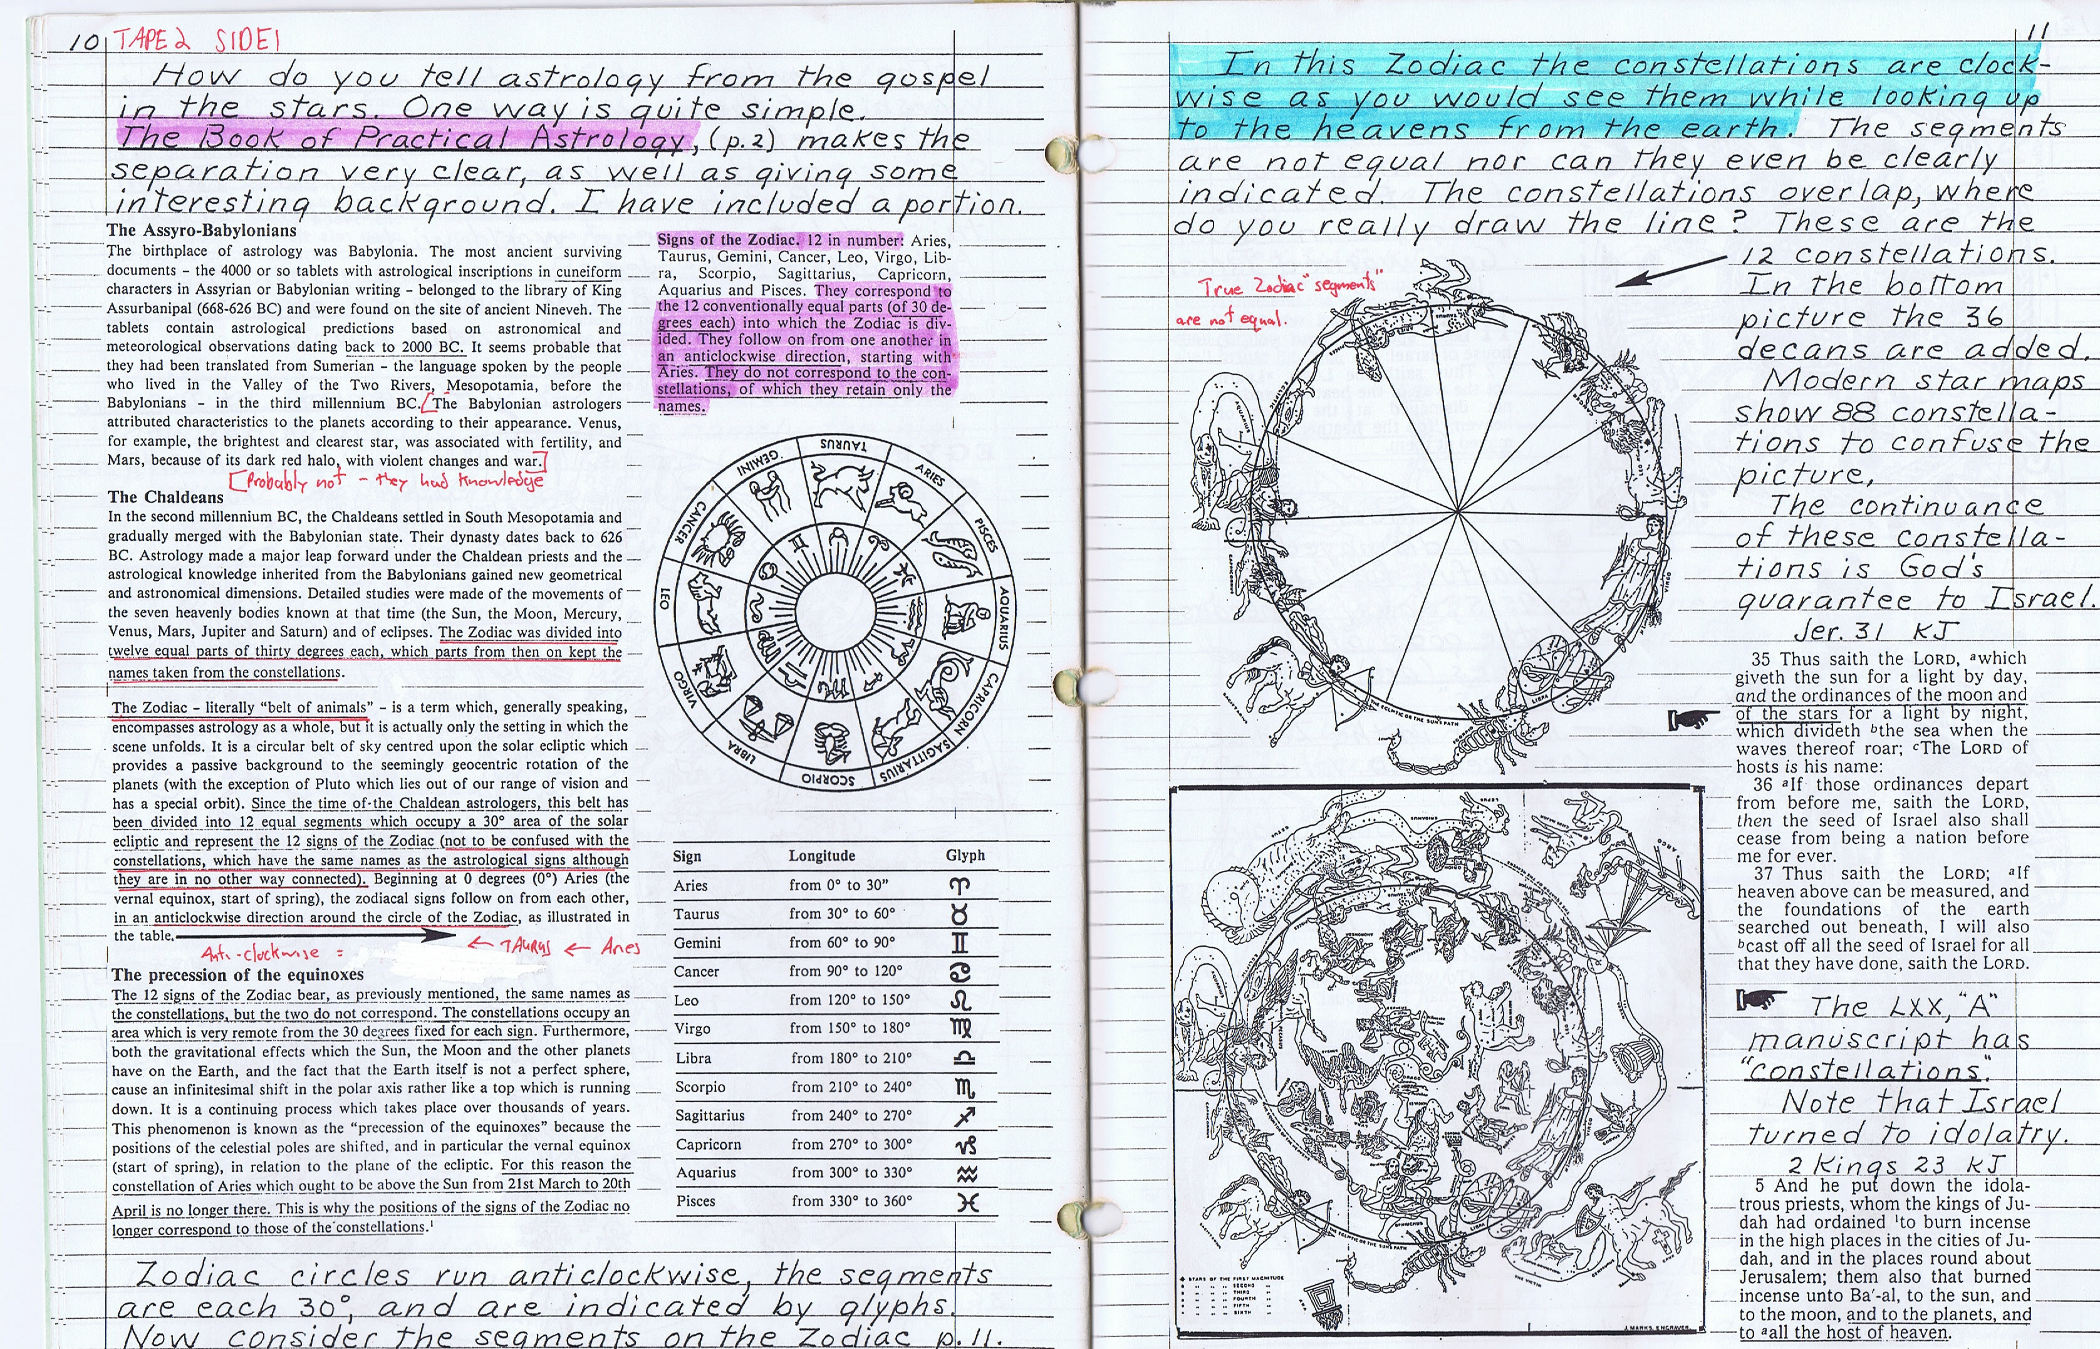 10 TAPE 2 SIDE 1
How do you tell astrology from the gospel
in the stars. One way is quite simple.
The Book of Practical Astrology, (p.2) makes the
separation very clear, as well as giving some
interesting background. I have included a portion.
The Assyro-Babylonians
The birthplace of astrology was Babylonia. The most ancient surviving
documents – the 4000 or so tablets with astrological inscriptions in cuneiform
characters in Assyrian or Babylonian writing – belonged to the library of King
Assurbanipal (668-626 BC) and were found on the site of ancient Nineveh. The
tablets contain astrological predictions based on astronomical and
meteorological observations dating back to 2000 BC. It seems probable that
they had been translated from Sumerian – the language spoken by the people
who lived in the Valley of the Two Rivers, Mesopotamia, before the
Babylonians – in the third millennium BC. [The Babylonian astrologers
attributed characteristics to the planets according to their appearance. Venus,
for example, the brightest and clearest star, was associated with fertility, and
Mars, because of its dark red halo, with violent changes and war.]
[Probably not – they had knowledge
The Chaldeans
In the second millennium BC, the Chaldeans settled in South Mesopotamia and
gradually merged with the Babylonian state. Their dynasty dates back to 626
BC. Astrology made a major leap forward under the Chaldean priests and the
astrological knowledge inherited from the Babylonians gained new geometrical
and astronomical dimensions. Detailed studies were made of the movements of
the seven heavenly bodies known at that time (the Sun, the Moon, Mercury,
Venus, Mars, Jupiter and Saturn) and of eclipses. The Zodiac was divided into
twelve equal parts of thirty degrees each, which parts from then on kept the
names taken from the constellations.
The Zodiac – literally “belt of animals” – is a term which, generally speaking,
encompasses astrology as a whole, but it is actually only the setting in which the
scene unfolds. It is a circular belt of sky centred upon the solar ecliptic which
provides a passive background to the seemingly geocentric rotation of the
planets (with the exception of Pluto which lies out of our range of vision and
has a special orbit). Since the time of the Chaldean astrologers, this belt has
been divided into 12 equal segments which occupy a 30° area of the solar
ecliptic and represent the 12 signs of the Zodiac (not to be confused with the
constellations, which have the same names as the astrological signs although
they are in no other way connected). Beginning at 0 degrees (0°) Aries (the
vernal equinox, start of spring), the zodiacal signs follow on from each other,
in an anticlockwise direction around the circle of the Zodiac, as illustrated in
the table.
Anti-clockwise = ← TAURUS ← Aries
The precession of the equinoxes
The 12 signs of the Zodiac bear, as previously mentioned, the same names as
the constellations, but the two do not correspond. The constellations occupy an
area which is very remote from the 30 degrees fixed for each sign. Furthermore,
both the gravitational effects which the Sun, the Moon and the other planets
have on the Earth, and the fact that the Earth itself is not a perfect sphere,
cause an infinitesimal shift in the polar axis rather like a top which is running
down. It is a continuing process which takes place over thousands of years.
This phenomenon is known as the “precession of the equinoxes” because the
positions of the celestial poles are shifted, and in particular the vernal equinox
(start of spring), in relation to the plane of the ecliptic. For this reason the
constellation of Aries which ought to be above the Sun from 21st March to 20th
April is no longer there. This is why the positions of the signs of the Zodiac no
longer correspond to those of the constellations.¹
Signs of the Zodiac. 12 in number: Aries,
Taurus, Gemini, Cancer, Leo, Virgo, Lib-
ra, Scorpio, Sagittarius, Capricorn,
Aquarius and Pisces. They correspond to
the 12 conventionally equal parts (of 30 de-
grees each) into which the Zodiac is div-
ided. They follow on from one another in
an anticlockwise direction, starting with
Aries. They do not correspond to the con-
stellations, of which they retain only the
names.
TAURUS
ARIES
PISCES
AQUARIUS
CAPRICORN
SAGITTARIUS
SCORPIO
LIBRA
VIRGO
LEO
CANCER
GEMINI
Sign Longitude Glyph
Aries from 0° to 30" ♈
Taurus from 30° to 60° ♉
Gemini from 60° to 90° ♊
Cancer from 90° to 120° ♋
Leo from 120° to 150° ♌
Virgo from 150° to 180° ♍
Libra from 180° to 210° ♎
Scorpio from 210° to 240° ♏
Sagittarius from 240° to 270° ♐
Capricorn from 270° to 300° ♑
Aquarius from 300° to 330° ♒
Pisces from 330° to 360° ♓
Zodiac circles run anticlockwise, the segments
are each 30°, and are indicated by glyphs.
Now consider the segments on the Zodiac p. 11.
11
In this Zodiac the constellations are clock-
wise as you would see them while looking up
to the heavens from the earth. The segments
are not equal nor can they even be clearly
indicated. The constellations overlap, where
do you really draw the line? These are the
12 constellations.
In the bottom
picture the 36
decans are added.
Modern star maps
show 88 constella-
tions to confuse the
picture,
The continuance
of these constella-
tions is God's
guarantee to Israel.
Jer. 31 KJ
True Zodiac "segments"
are not equal.
AQUARIUS
VIRGO
LIBRA
THE ECLIPTIC OR THE SUN'S PATH
35 Thus saith the LORD, ᵃwhich
giveth the sun for a light by day,
and the ordinances of the moon and
of the stars for a light by night,
which divideth ᵇthe sea when the
waves thereof roar; ᶜThe LORD of
hosts is his name:
36 ᵃIf those ordinances depart
from before me, saith the LORD,
then the seed of Israel also shall
cease from being a nation before
me for ever.
37 Thus saith the LORD; ᵃIf
heaven above can be measured, and
the foundations of the earth
searched out beneath, I will also
ᵇcast off all the seed of Israel for all
that they have done, saith the LORD.
The LXX, "A"
manuscript has
"constellations."
Note that Israel
turned to idolatry.
2 Kings 23 KJ
5 And he put down the idola-
trous priests, whom the kings of Ju-
dah had ordained ¹to burn incense
in the high places in the cities of Ju-
dah, and in the places round about
Jerusalem; them also that burned
incense unto Ba'-al, to the sun, and
to the moon, and to the planets, and
to ᵃall the host of heaven.
ARGO
THE ECLIPTIC OR THE SUN'S PATH
THE VICTIM
STARS OF THE FIRST MAGNITUDE
SECOND
THIRD
FOURTH
FIFTH
SIXTH
J. MARKS, ENGRAVER